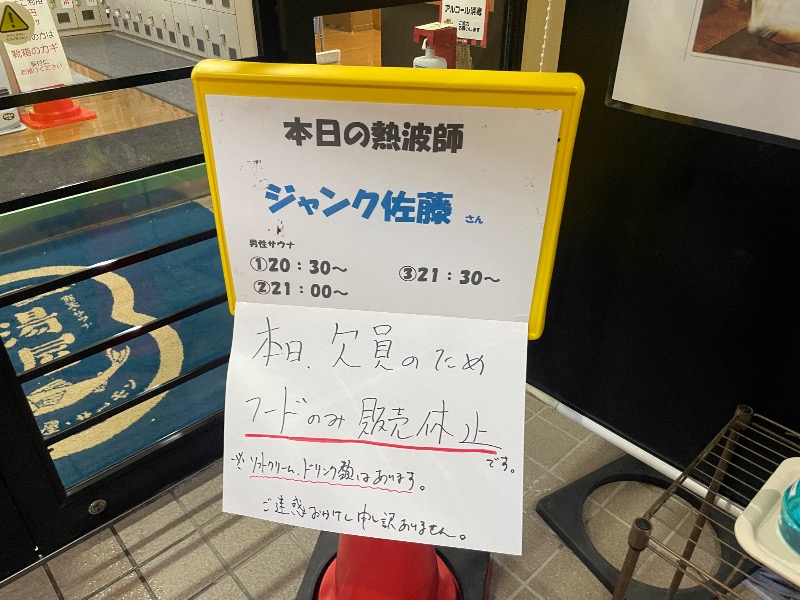 本日の熱波師
ジャンク佐藤 さん
男性サウナ
①20：30～ ③21：30～
②21：00～
本日、欠員のため
フードのみ販売休止
です。
※ソフトクリーム、ドリンク類はあります。
ご迷惑おかけし申し訳ありません。
アルコール消毒
靴箱のカギ
湯屋